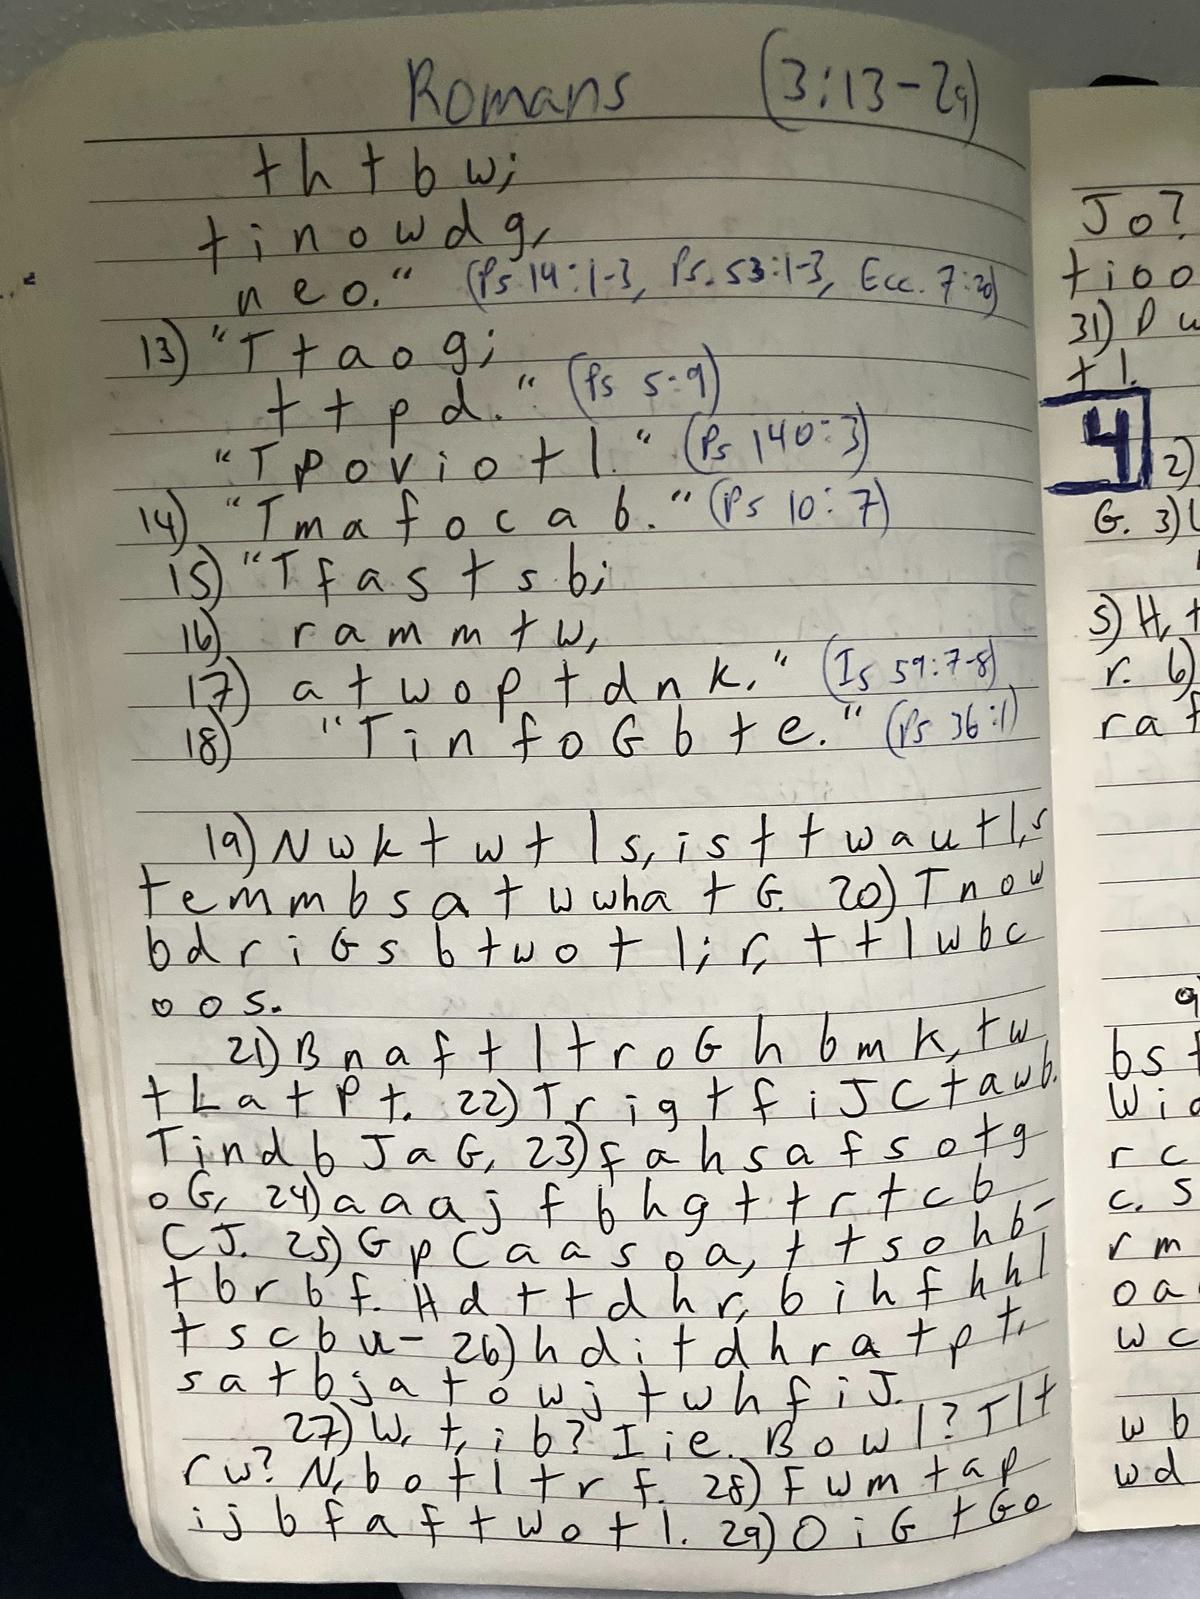 Romans (3:13-29)
t h t b w;
t i n o w d g,
n e o." (Ps 14:1-3, Ps. 53:1-3, Ecc. 7:20)
13) "T t a o g;
t t p d." (Ps 5:9)
"T p o v i o t l." (Ps 140:3)
14) "T m a f o c a b." (Ps 10:7)
15) "T f a s t s b;
16) r a m m t w,
17) a t w o p t d n k." (Is 59:7-8)
18) "T i n f o G b t e." (Ps 36:1)
19) N w k t w t l s, i s t t w a u t l, s
t e m m b s a t w w h a t G. 20) T n o w
b d r i G s b t w o t l; r, t t l w b c
o o s.
21) B n a f t l t r o G h b m k, t w
t L a t P t. 22) T r i g t f i J C t a w b.
T i n d b J a G, 23) f a h s a f s o t g
o G, 24) a a a j f b h g t t r t c b
C J. 25) G p C a a s o a, t t s o h b-
t b r b f. H d t t d h r, b i h f h h l
t s c b u- 26) h d i t d h r a t p t,
s a t b j a t o w j t w h f i J.
27) W, t, i b? I i e. B o w l? T l t
r w? N, b o t l t r f. 28) F w m t a p
i j b f a f t w o t l. 29) O i G t G o
Jo?
t i o o
31) D w
t l.
4
2)
G. 3)
5) H, t
r. 6)
r a f
9
b s t
W i
r c
c. S
r m
o a
w c
w b
w d